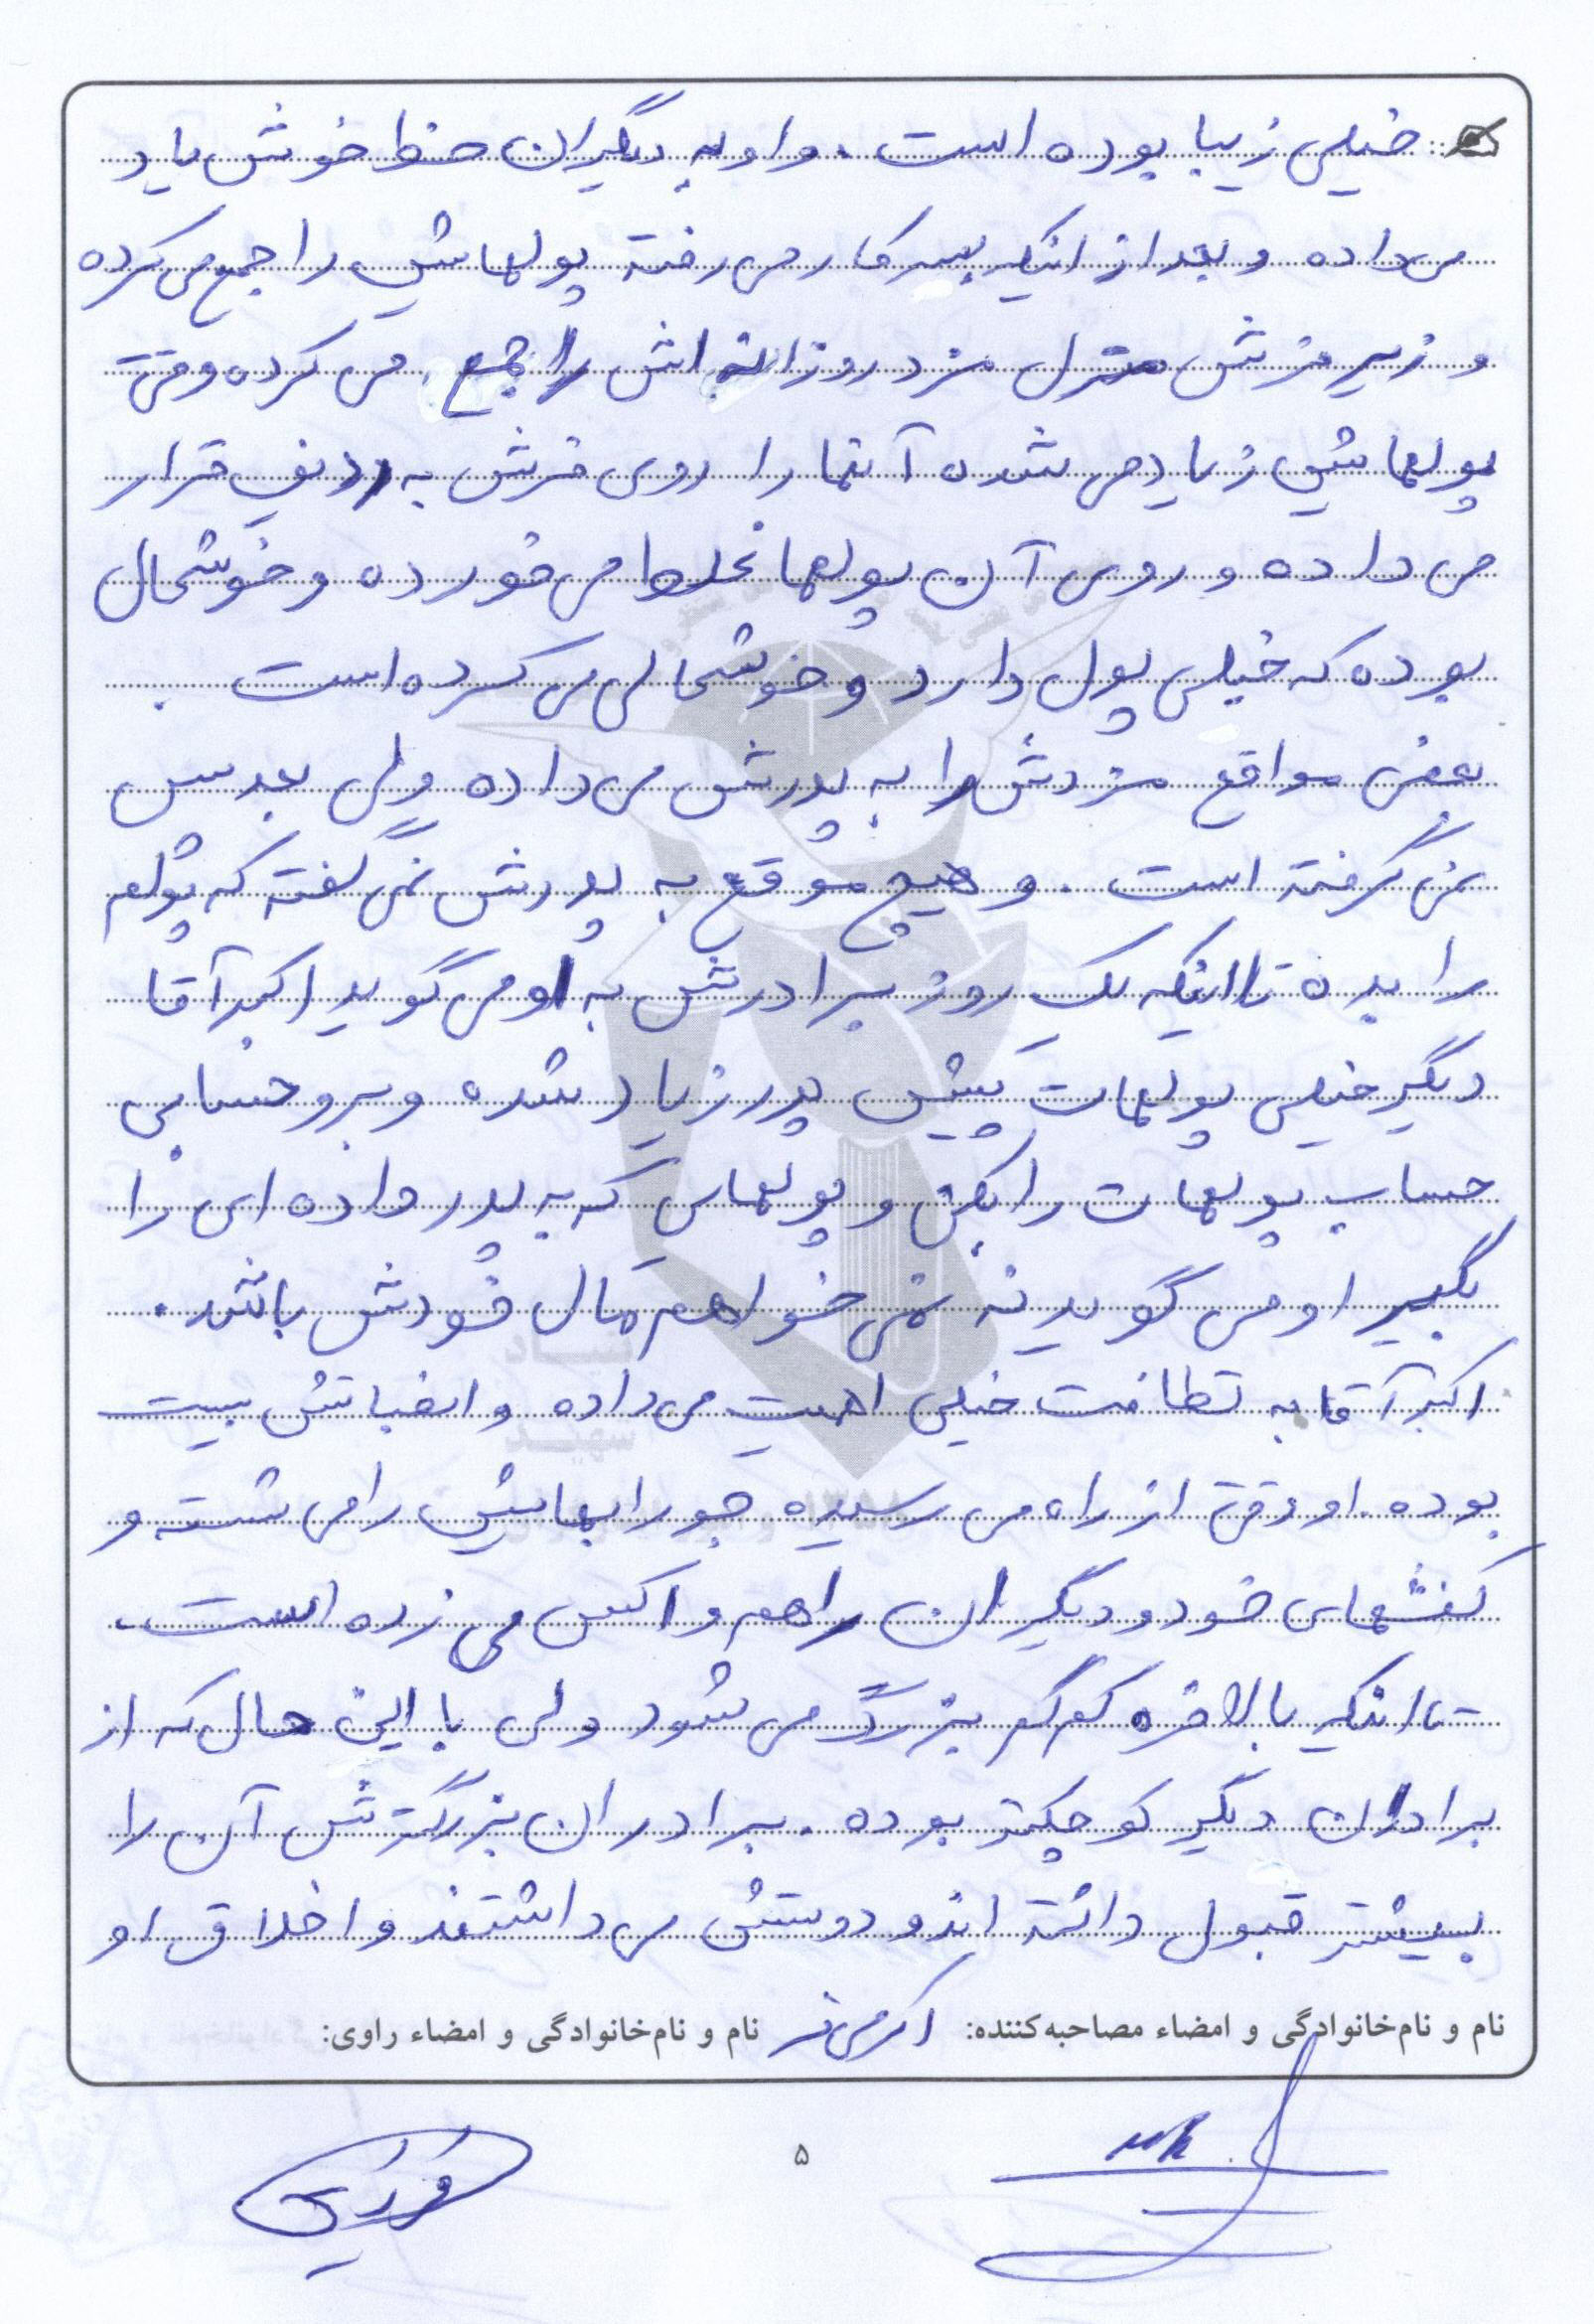 خیلی زیبا بوده است. و او به دیگران خط خوش یاد
می داده و بعد از اینکه بسر کار می رفته پولهایش را جمع می کرده
و زیر فرش منزل مزد روزانه اش را جمع می کرده وقتی
پولهایش زیاد می شده آنها را روی فرش به ردیف قرار
می داده و روی آن پولها غلط می خورده و خوشحال
بوده که خیلی پول دارد و خوشحالی می کرده است.
بعضی مواقع مزدش را به پدرش می داده ولی بعد پس
نمی گرفته است. و هیچ موقع به پدرش نمی گفته که پولم
را بده تا اینکه یک روز برادرش به او می گوید اکبر آقا
دیگر خیلی پولهات پیش پدر زیاد شده و برو حسابی
حساب پولهات را بکن و پولهایی که به پدر داده ای را
بگیر او می گوید نه نمی خواهم مال خودش باشد.
اکبر آقا به نظافت خیلی اهمیت می داده و انضباتش بیست
بوده. او وقتی از راه می رسیده جورابهایش را می شسته و
کفشهای خود و دیگران را هم واکس می زده است.
تا اینکه بالاخره کم کم بزرگ می شود ولی با این حال که از
برادران دیگر کوچکتر بوده. برادران بزرگترش آن را
بیشتر قبول داشته اند و دوستش می داشتند و اخلاق او
نام و نام‌خانوادگی و امضاء مصاحبه‌کننده: نام و نام‌خانوادگی و امضاء راوی:
۵